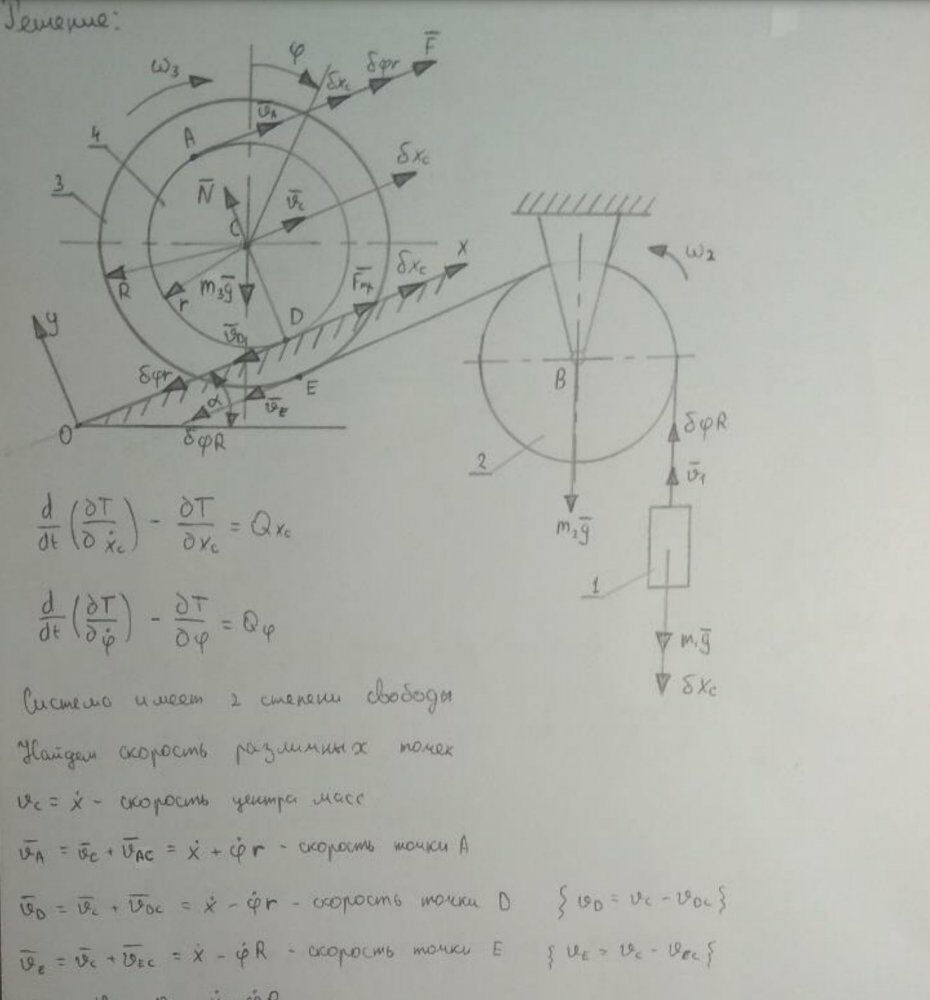 Решение:
ω₃
φ
δx_c
δφr
F̅
v̅_A
A
4
3
N̅
v̅_c
δx_c
C
R
r
m₃g̅
F̅_тр
δx_c
x
D
v̅_D
y
δφr
α
E
v̅_E
O
δφR
ω₂
B
2
m₂g̅
δφR
v̅₁
1
m₁g̅
δx_c
d/dt (∂T/∂ẋ_c) − ∂T/∂x_c = Q_{x_c}
d/dt (∂T/∂φ̇) − ∂T/∂φ = Q_φ
Система имеет 2 степени свободы
Найдем скорость различных точек
v_c = ẋ - скорость центра масс
v̅_A = v̅_c + v̅_AC = ẋ + φ̇r - скорость точки A
v̅_D = v̅_c + v̅_DC = ẋ − φ̇r - скорость точки D { v_D = v_c − v_DC }
v̅_E = v̅_c + v̅_EC = ẋ − φ̇R - скорость точки E { v_E = v_c − v_EC }